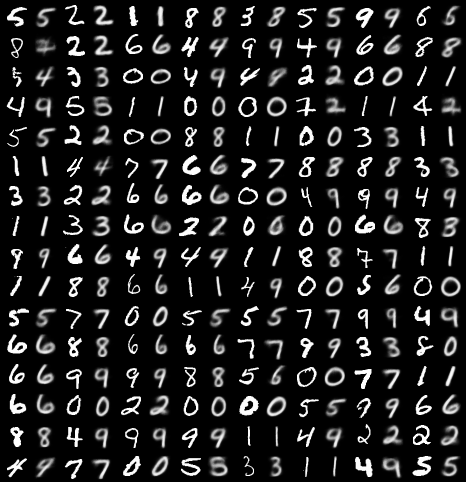 5 5 2 2 1 1 8 8 3 8 5 5 9 9 6 6
8 2 2 6 6 4 4 9 9 4 9 6 6 8 8
5 4 3 3 0 0 4 9 4 8 2 2 0 0 1 1
4 9 5 5 1 1 0 0 0 0 7 2 1 1 4 2
5 5 2 2 0 0 8 8 1 1 0 0 3 3 1 1
1 1 4 4 7 7 6 6 7 7 8 8 8 8 3 3
3 3 2 2 6 6 6 6 0 0 4 9 9 9 4 9
1 1 3 3 6 6 2 2 0 6 0 0 6 6 8 3
9 9 6 6 4 9 4 9 1 1 8 8 7 7 1 1
1 1 8 8 6 6 1 1 4 9 0 0 5 6 0 0
5 5 7 7 0 0 5 5 5 5 7 7 9 9 4 9
6 6 8 8 6 6 6 6 7 7 9 9 3 3 8 0
6 6 9 9 9 9 8 8 5 6 0 0 7 7 1 1
6 6 0 0 2 2 0 0 0 0 5 5 9 9 6 6
8 8 4 9 9 9 9 9 1 1 4 9 2 2 2 2
4 9 7 7 0 0 5 5 3 3 1 1 4 9 5 5